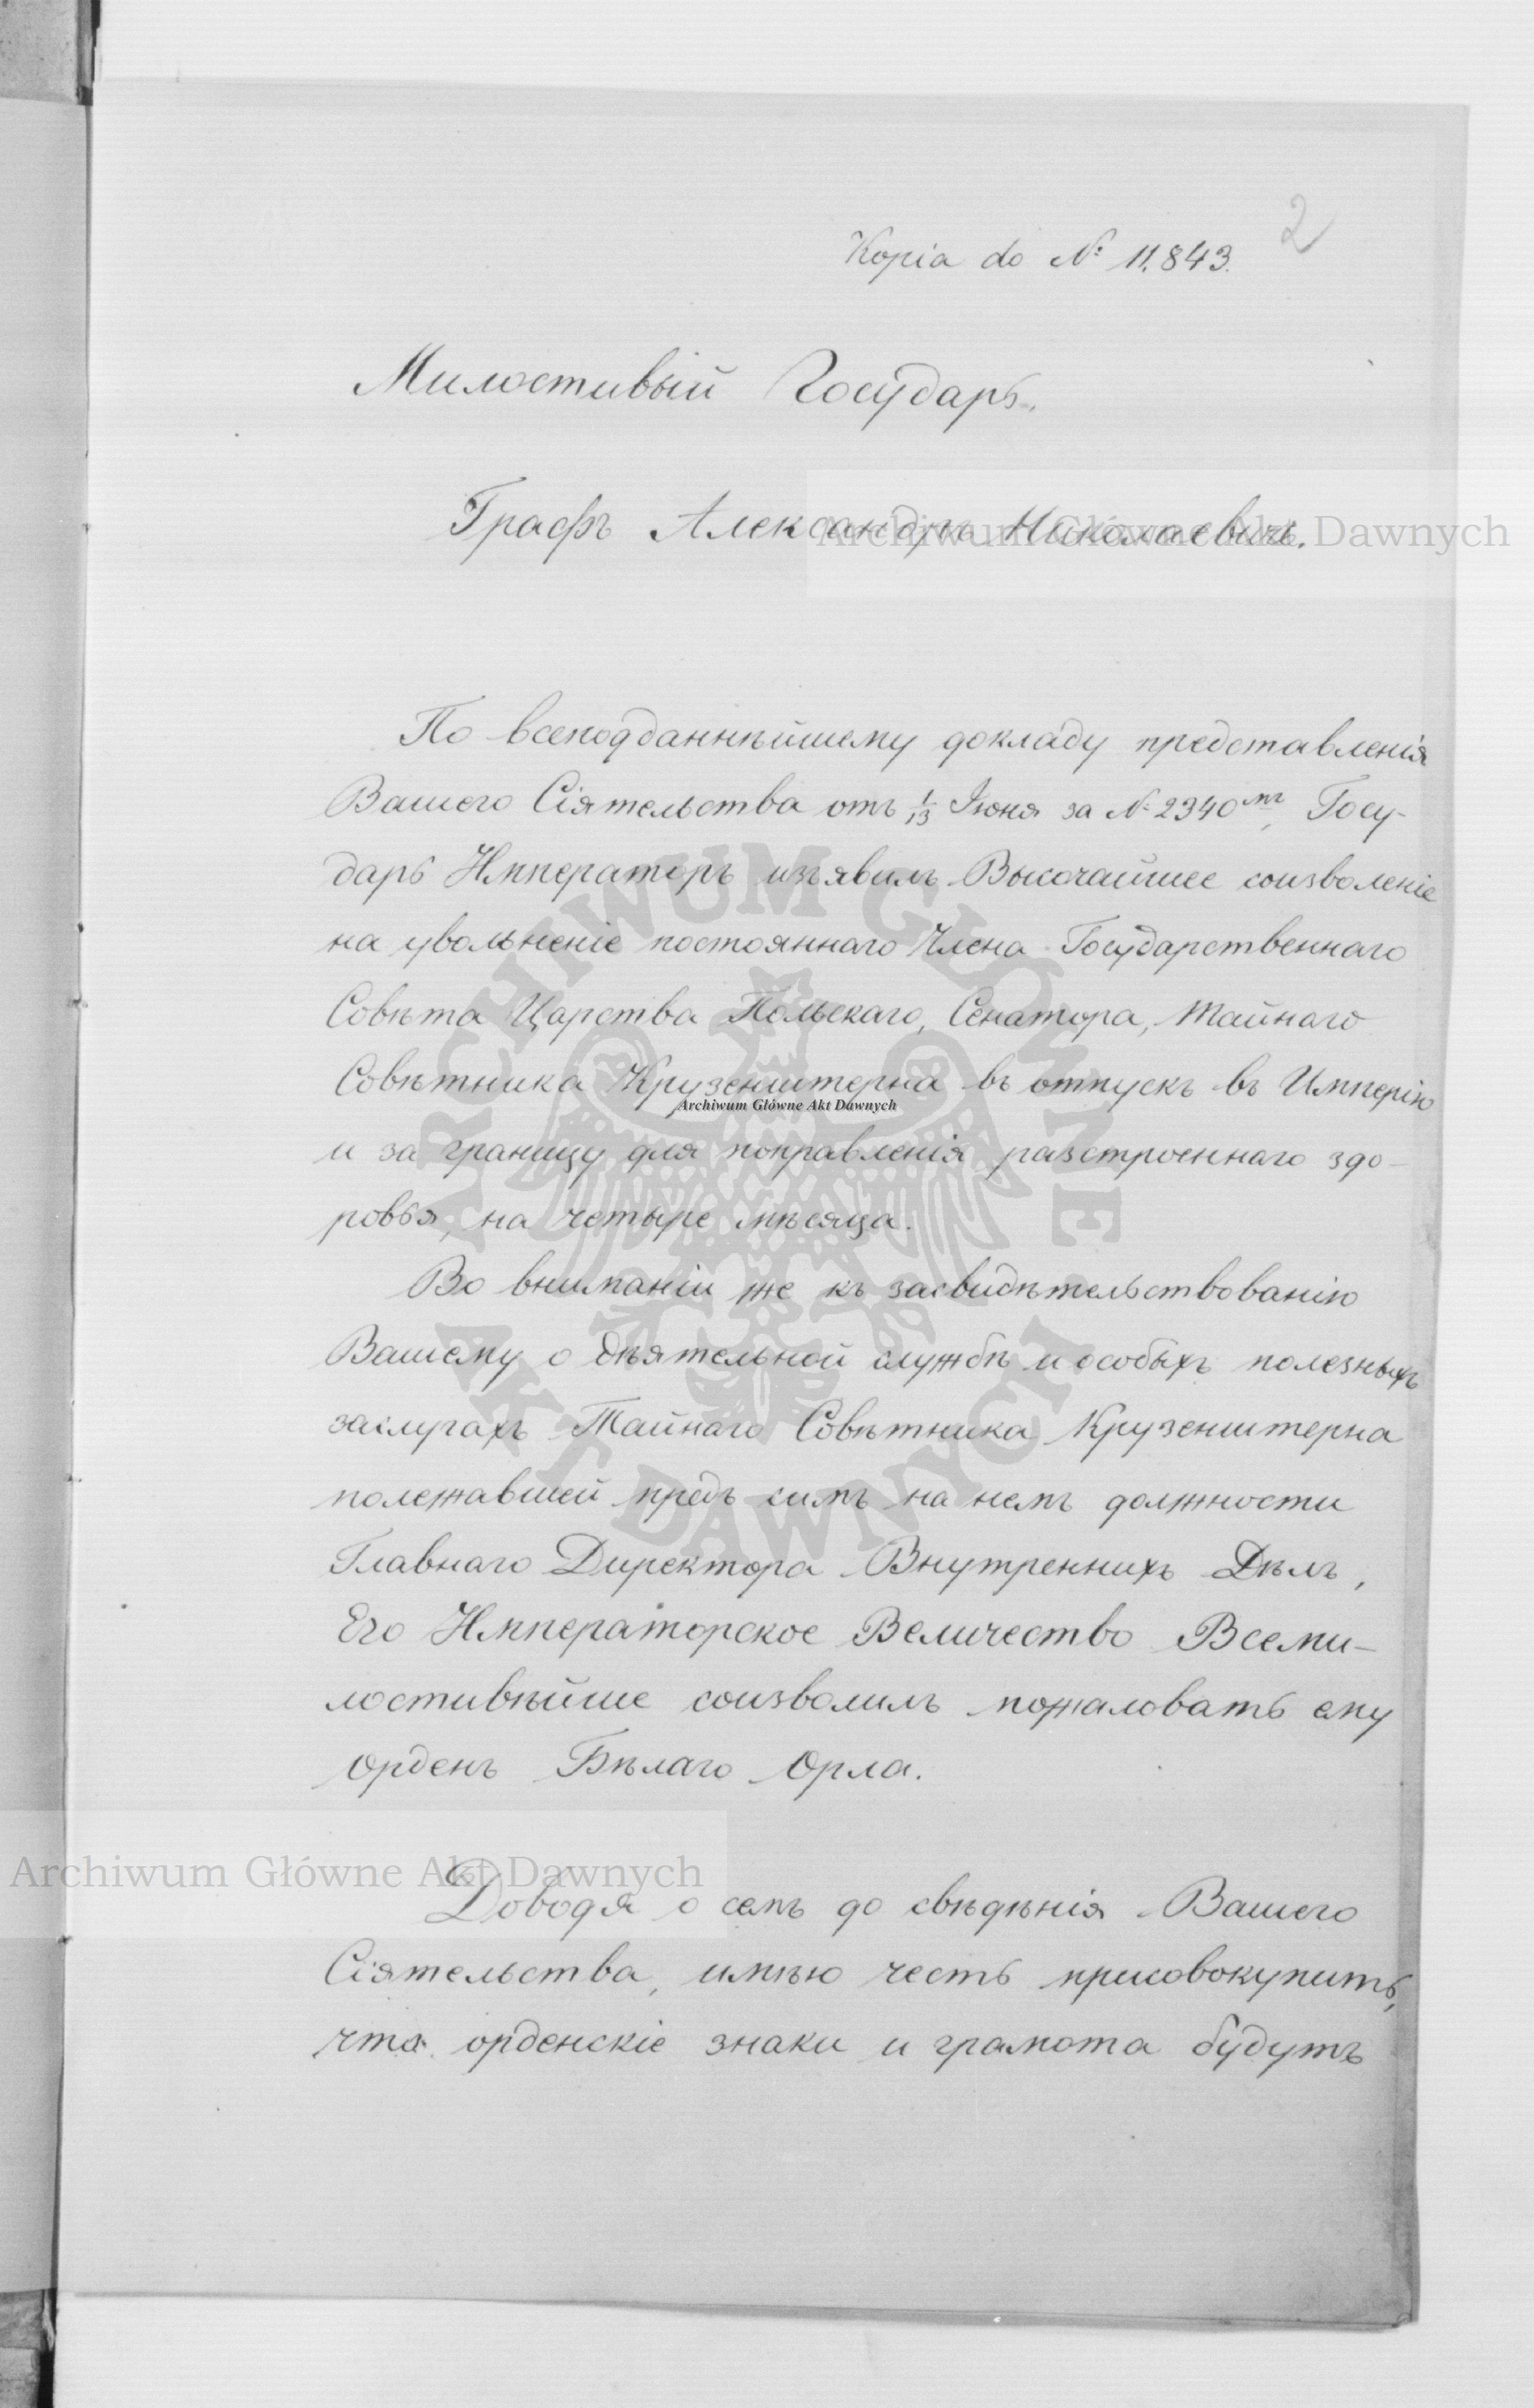 2
Kopia do № 11.843.
Милостивый Государь.
Графъ Александръ Николаевичъ.
По всеподданнѣйшему докладу представленія
Вашего Сіятельства отъ 1/13 Іюня за № 2340мъ, Госу-
дарь Императоръ изъявилъ Высочайшее соизволеніе
на увольненіе постояннаго Члена Государственнаго
Совѣта Царства Польскаго, Сенатора, Тайнаго
Совѣтника Крузенштерна въ отпускъ въ Имперію
и за границу для поправленія разстроеннаго здо-
ровья, на четыре мѣсяца.
Во вниманіи же къ засвидѣтельствованію
Вашему о дѣятельной службѣ и особыхъ полезныхъ
заслугахъ Тайнаго Совѣтника Крузенштерна
полежавшей предъ симъ на немъ должности
Главнаго Директора Внутреннихъ Дѣлъ,
Его Императорское Величество Всеми-
лостивѣйше соизволилъ пожаловать ему
орденъ Бѣлаго Орла.
Доводя о семъ до свѣдѣнія Вашего
Сіятельства, имѣю честь присовокупить,
что орденскіе знаки и грамота будутъ
Archiwum Główne Akt Dawnych
Archiwum Główne Akt Dawnych
Archiwum Główne Akt Dawnych
ARCHIWUM GŁÓWNE AKT DAWNYCH